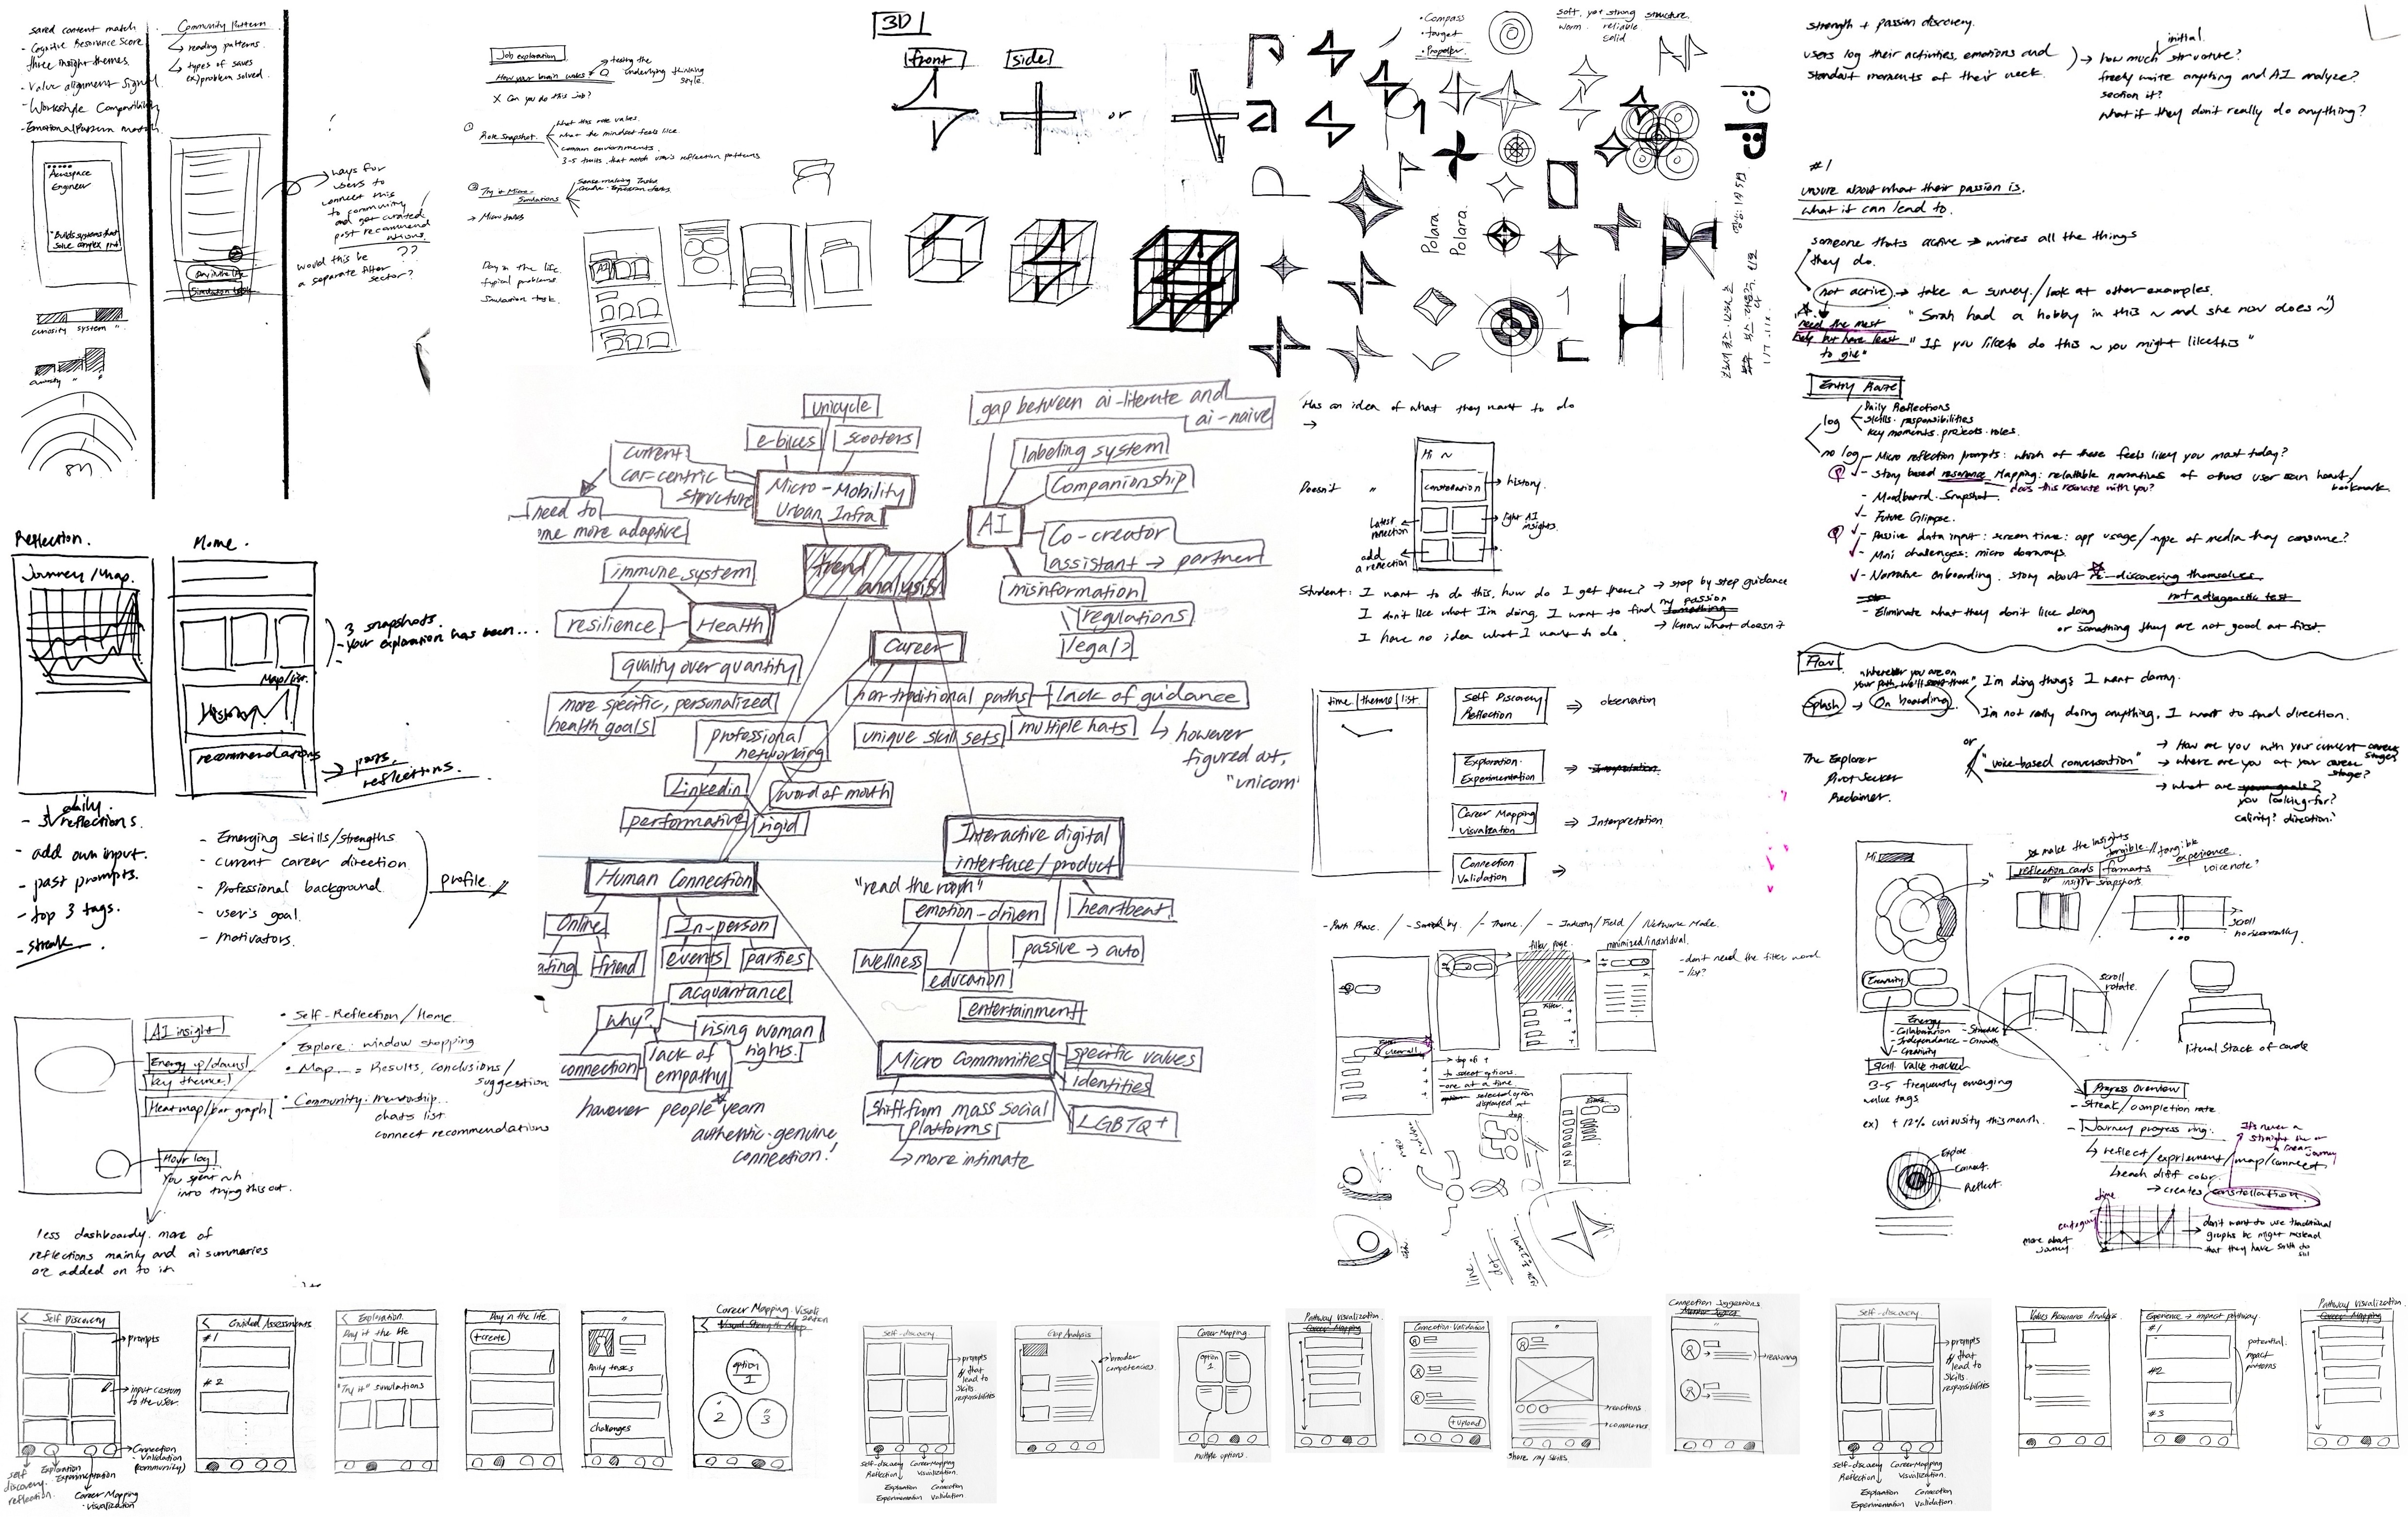 saved content match
- Cognitive Resonance Score
three insight themes.
- Value alignment signal
- Workstyle Compatibility
- Emotional Pattern match
Aerospace
Engineer
"Builds systems that
solve complex prob
curiosity system "
curiosity "
8h
Community Pattern
↳ reading patterns.
↳ types of saves
ex) problem solved.
Day in the life
Simulation task
→ ways for
users to
connect this
to community
and get curated
post recommend
ations.
??
would this be
a separate filter
sector?
Job exploration
How your brain works
→ testing the
underlying thinking
style.
X Can you do this job?
① Role Snapshot
what this role values.
what the mindset feels like
common environments.
3-5 traits that match user's reflection patterns
② Try it Micro-
Simulations
Sense-making Tasks
→ Micro tasks
Day in the life.
typical problems.
Simulation task.
3D
front
side
or
• Compass
• target
• Propeller
soft, yet strong structure.
warm reliable
solid
Polara
Polara
strength + passion discovery.
users log their activities, emotions and
standout moments of their week.
initial
→ how much structure?
freely write anything and AI analyze?
section it?
what if they don't really do anything?
#1
unsure about what their passion is.
what it can lead to.
someone thats active → writes all the things
they do.
not active → take a survey / look at other examples.
"Sarah had a hobby in this ~ and she now does ~"
need the most
help but have least
to give"
"If you like to do this ~ you might like this"
Entry Route
log
Daily Reflections
skills · responsibilities
key moments · projects · roles.
no log - Micro reflection prompts: which of these feels like you most today?
- Story based resonance Mapping: relatable narratives of others user can heart/
bookmark
does this resonate with you?
- Moodboard Snapshot.
- Future Glimpse.
- Passive data input: screen time: app usage/type of media they consume?
- Mini challenges: micro doorways.
- Narrative onboarding. story about re-discovering themselves
not a diagnostic test
- Eliminate what they don't like doing
or something they are not good at first.
Flow
"Wherever you are on
Splash → On boarding
I'm doing things I want doing.
I'm not really doing anything, I want to find direction.
or
"voice-based conversation"
→ How are you with your current career
stages
→ where are you at your career
stage?
→ what are your goals?
you looking for?
clarity? direction?
The Explorer
Pivot Seeker
Reclaimer.
unicycle
e-bikes
scooters
current
car-centric
structure
Micro-Mobility
Urban Infra
need to
ome more adaptive
gap between ai-literate and
ai-naive
labeling system
Companionship
AI
Co-creator
assistant → partner
misinformation
regulations
legal?
trend
analysis
immune system
resilience
Health
quality over quantity
more specific, personalized
health goals
Career
non-traditional paths
lack of guidance
unique skill sets
multiple hats
↳ however
figured at,
"unicorn
professional
networking
Linkedin
word of mouth
performative
rigid
Interactive digital
interface/product
"read the room"
emotion-driven
heartbeat
passive → auto
wellness
education
entertainment
Human Connection
Online
In-person
ating
friend
events
parties
acquantance
why?
rising woman
rights.
lack of
empathy
connection
however people yearn
authentic · genuine
connection!
Micro Communities
specific values
identities
LGBTQ+
shift from mass social
platforms
↳ more intimate
Has an idea of what they want to do
→
Doesn't "
Hi ~
constellation
→ history.
latest
connection
light AI
insights.
add
a reflection
Student: I want to do this, how do I get there? → step by step guidance
I don't like what I'm doing, I want to find something my passion
I have no idea what I want to do. → know what doesn't
time | theme | list
Self Discovery
Reflection
⇒ observation
Exploration·
Experimentation
⇒ Interpretation
Career Mapping
Visualization
⇒ Interpretation
Connection
Validation
⇒
Reflection.
Journey/Map.
Home.
3 snapshots.
- your exploration has been...
Map/List
History
recommendations
→ past
reflections.
daily.
- 3 reflections.
- add own input.
- past prompts.
- top 3 tags.
- streak
- Emerging skills/strengths
- current career direction
- Professional background.
- user's goal.
- motivators.
profile
AI insight
Energy up/downs
key theme
Heatmap/bar graph
Hour log
You spent nh
into trying this out.
• Self-Reflection/Home
• Explore: window shopping
• Map = Results, conclusions/
suggestion
• Community: mentorship.
chats list
connect recommendations
less dashboardy. more of
reflections mainly and ai summaries
are added on to it
- Path Phase. / - Sorted by. / - Theme. / - Industry/Field / Network Mode.
filter page.
minimized/individual.
- don't need the filter word
- list?
Filter.
clear all
→ top of +
to select options.
- one at a time.
selected option
displayed at
top
line
dot
Hi
☆ make the insights
tangible // tangible
experience
voice note?
reflection cards
formats
or insight snapshots
scroll
horizontally
scroll
rotate.
literal stack of cards
Creativity
Energy
- Collaboration
- Independance
- Creativity
- Structure
- Growth
Skill value tracker
3-5 frequently emerging
value tags
ex) + 12% curiosity this month.
Explore
Connect.
Reflect.
Progress Overview
- streak/completion rate
- Journey progress ring.
It's never a
straight line or
linear
journey
↳ reflect/expriement/map/connect
↳ each diff color.
→ creates constellation.
time
category
more about
journey.
→ don't want to use traditional
graphs bc might mislead
that they have smth to
Self Discovery
→ prompts
→ input custom
to the user.
→ Connection
- Validation
(community)
self
discovery
reflection.
Exploration
Experimentation
Career Mapping
- visualization
Guided Assessments
#1
#2
Exploration.
Day in the life
"Try it" simulations
Day in the life
+create
Daily tasks
Challenges
Career Mapping · Visuali
zation
Visual Strength Map
option
1
2
3
Self-discovery.
→ prompts
that
lead to
skills.
responsibilities
Self-discovery
Reflection
Career Mapping
Visualization
Exploration
Experimentation
Connection
Validation
Gap Analysis
→ broader
competencies.
Career Mapping.
option
1
multiple options.
Pathway Visualization
Career Mapping
Connection·Validation
+upload
→ reactions
→ comments
share my skills.
Connection Suggestions
→ reasoning
Self-discovery
→ prompts
that
lead to
skills.
responsibilities
Self-discovery
Reflection
Career Mapping
Visualization
Exploration
Experimentation
Connection
Validation
Values Resonance Analysis
Experience → impact pathway.
#1
#2
#3
potential
impact
patterns
Pathway Visualization
Career Mapping